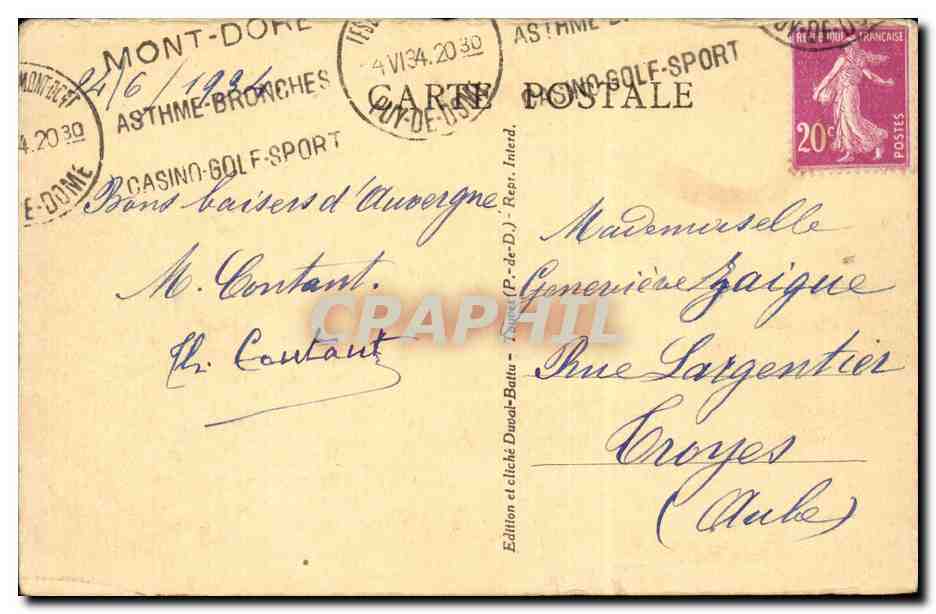 MONT-DORE
ASTHME-BRONCHES
CASINO-GOLF-SPORT
4.2030
E-DOME
24/6/1934
4 VI 34.2030
PUY-DE-DOME
CASINO-GOLF-SPORT
CARTE POSTALE
REPUBLIQUE FRANCAISE
20c
POSTES
Bons baisers d'Auvergne
M. Contant.
Th. Contant
Edition et cliché Duval-Battu - Tauves (P.-de-D.) - Repr. Interd.
Mademoiselle
Geneviève Zaigue
Rue Largentier
Troyes
(Aube)
CPAPHIL